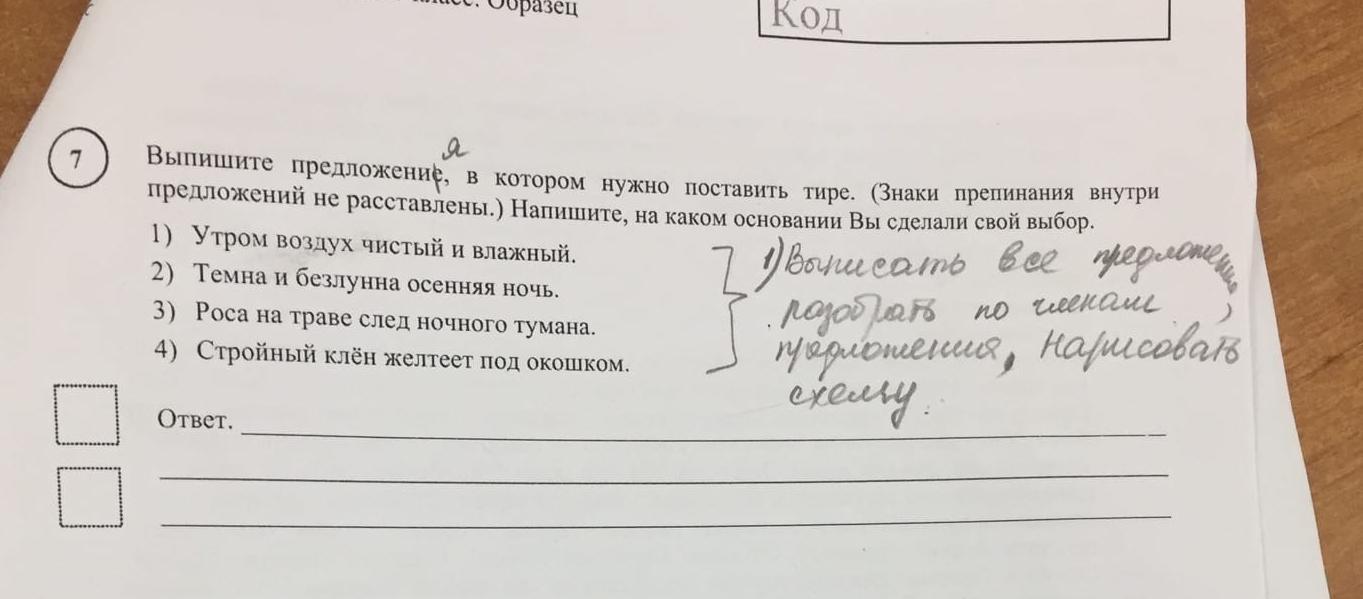 Образец
Код
7
я
Выпишите предложение, в котором нужно поставить тире. (Знаки препинания внутри
предложений не расставлены.) Напишите, на каком основании Вы сделали свой выбор.
1) Утром воздух чистый и влажный.
2) Темна и безлунна осенняя ночь.
3) Роса на траве след ночного тумана.
4) Стройный клён желтеет под окошком.
1) Выписать все предложения,
разобрать по членам
предложения, нарисовать
схему.
Ответ.